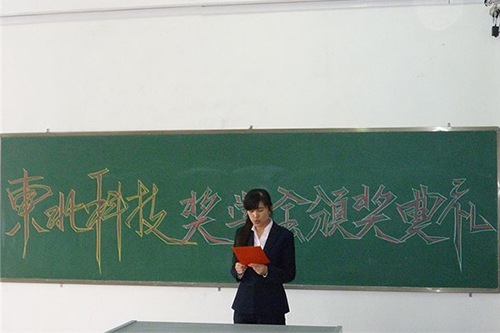 東北科技奖学金頒奖典礼